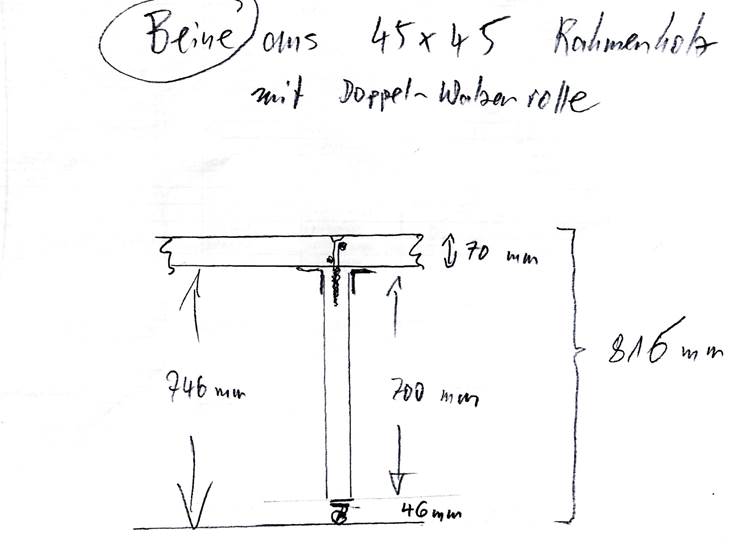 Beine aus 45 x 45 Rahmenholz
mit Doppel-Walzenrolle
70 mm
816 mm
746 mm
700 mm
46 mm